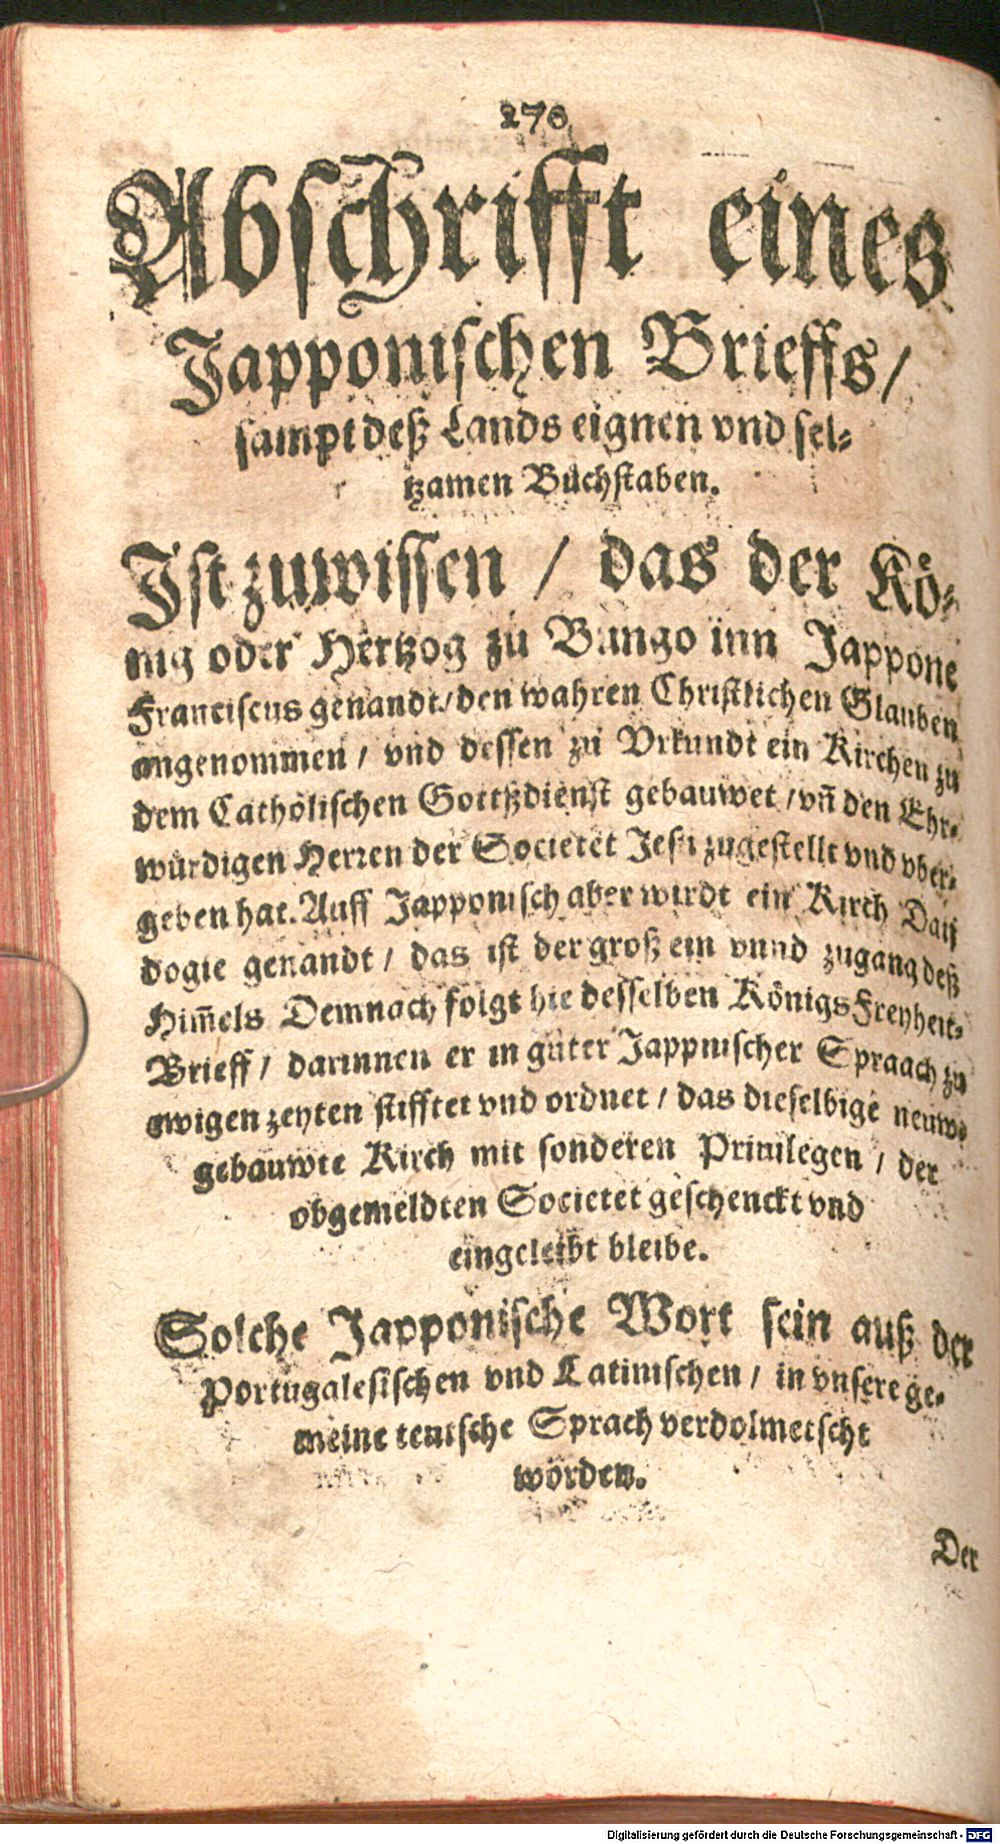 276
Abschrifft eines
Japponischen Brieffs/
sampt deß Lands eignen vnd sel⸗
tzamen Buchstaben.
Ist zuwissen / das der Kö⸗
nig oder Hertzog zu Bungo inn Jappone
Franciscus genandt/den wahren Christlichen Glauben
angenommen / vnd dessen zu Vrkundt ein Kirchen zu
dem Catholischen Gottßdienst gebauwet /vñ den Ehr⸗
würdigen Herren der Societet Jesu zugestellt vnd vber⸗
geben hat. Auff Japponisch aber wirdt ein Kirch Daij
dogie genandt / das ist der groß ein vnnd zugang deß
Him̃els Demnach folgt hie desselben Königs Freyheit⸗
Brieff / darinnen er in guter Jappnischer Spraach zu
ewigen zeyten stifftet vnd ordnet / das dieselbige neuw⸗
gebauwte Kirch mit sonderen Priuilegen / der
obgemeldten Societet geschenckt vnd
eingeleibt bleibe.
Solche Japponische Wort sein auß der
Portugalesischen vnd Latinischen / in vnsere ge⸗
meine teutsche Sprach verdolmetscht
worden.
Der
Digitalisierung gefördert durch die Deutsche Forschungsgemeinschaft - DFG